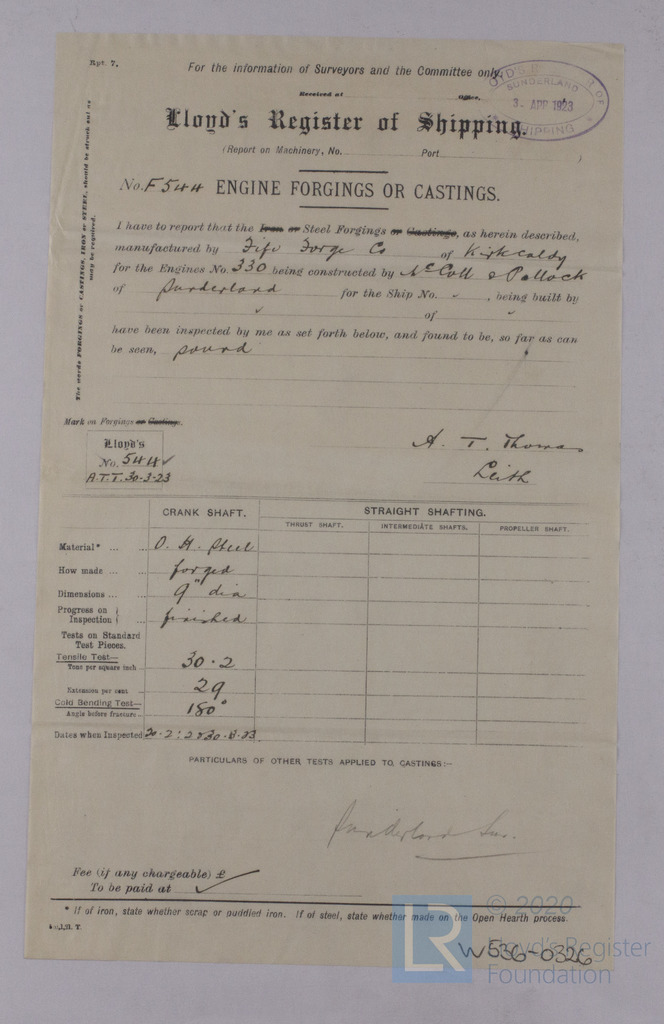 Rpt. 7.
For the information of Surveyors and the Committee only.
Received at Office,
SUNDERLAND
3- APR 1923
SHIPPING
Lloyd's Register of Shipping.
(Report on Machinery, No. Port )
No. F544 ENGINE FORGINGS OR CASTINGS.
The words FORGINGS or CASTINGS, IRON or STEEL, should be struck out as
may be required.
I have to report that the Iron or Steel Forgings or Castings, as herein described,
manufactured by Fife Forge Co of Kirkcaldy
for the Engines No. 330 being constructed by McColl & Pollock
of Sunderland for the Ship No. , being built by
of
have been inspected by me as set forth below, and found to be, so far as can
be seen, sound
Mark on Forgings or Castings.
Lloyd's
No. 544
A.T.T. 30-3-23
A. T. Thomas
Leith
CRANK SHAFT. STRAIGHT SHAFTING.
THRUST SHAFT. INTERMEDIATE SHAFTS. PROPELLER SHAFT.
Material* ... ... O. H. Steel
How made ... ... forged
Dimensions ... ... 9" dia
Progress on
Inspection ... finished
Tests on Standard
Test Pieces.
Tensile Test—
Tons per square inch ... 30.2
Extension per cent ... 29
Cold Bending Test—
Angle before fracture ... 180°
Dates when Inspected
PARTICULARS OF OTHER TESTS APPLIED TO CASTINGS:—
Sunderland Sur.
Fee (if any chargeable) £
To be paid at
* If of iron, state whether scrap or puddled iron. If of steel, state whether made on the Open Hearth process.
LR
© 2020
Lloyd's Register
Foundation
W536-0326